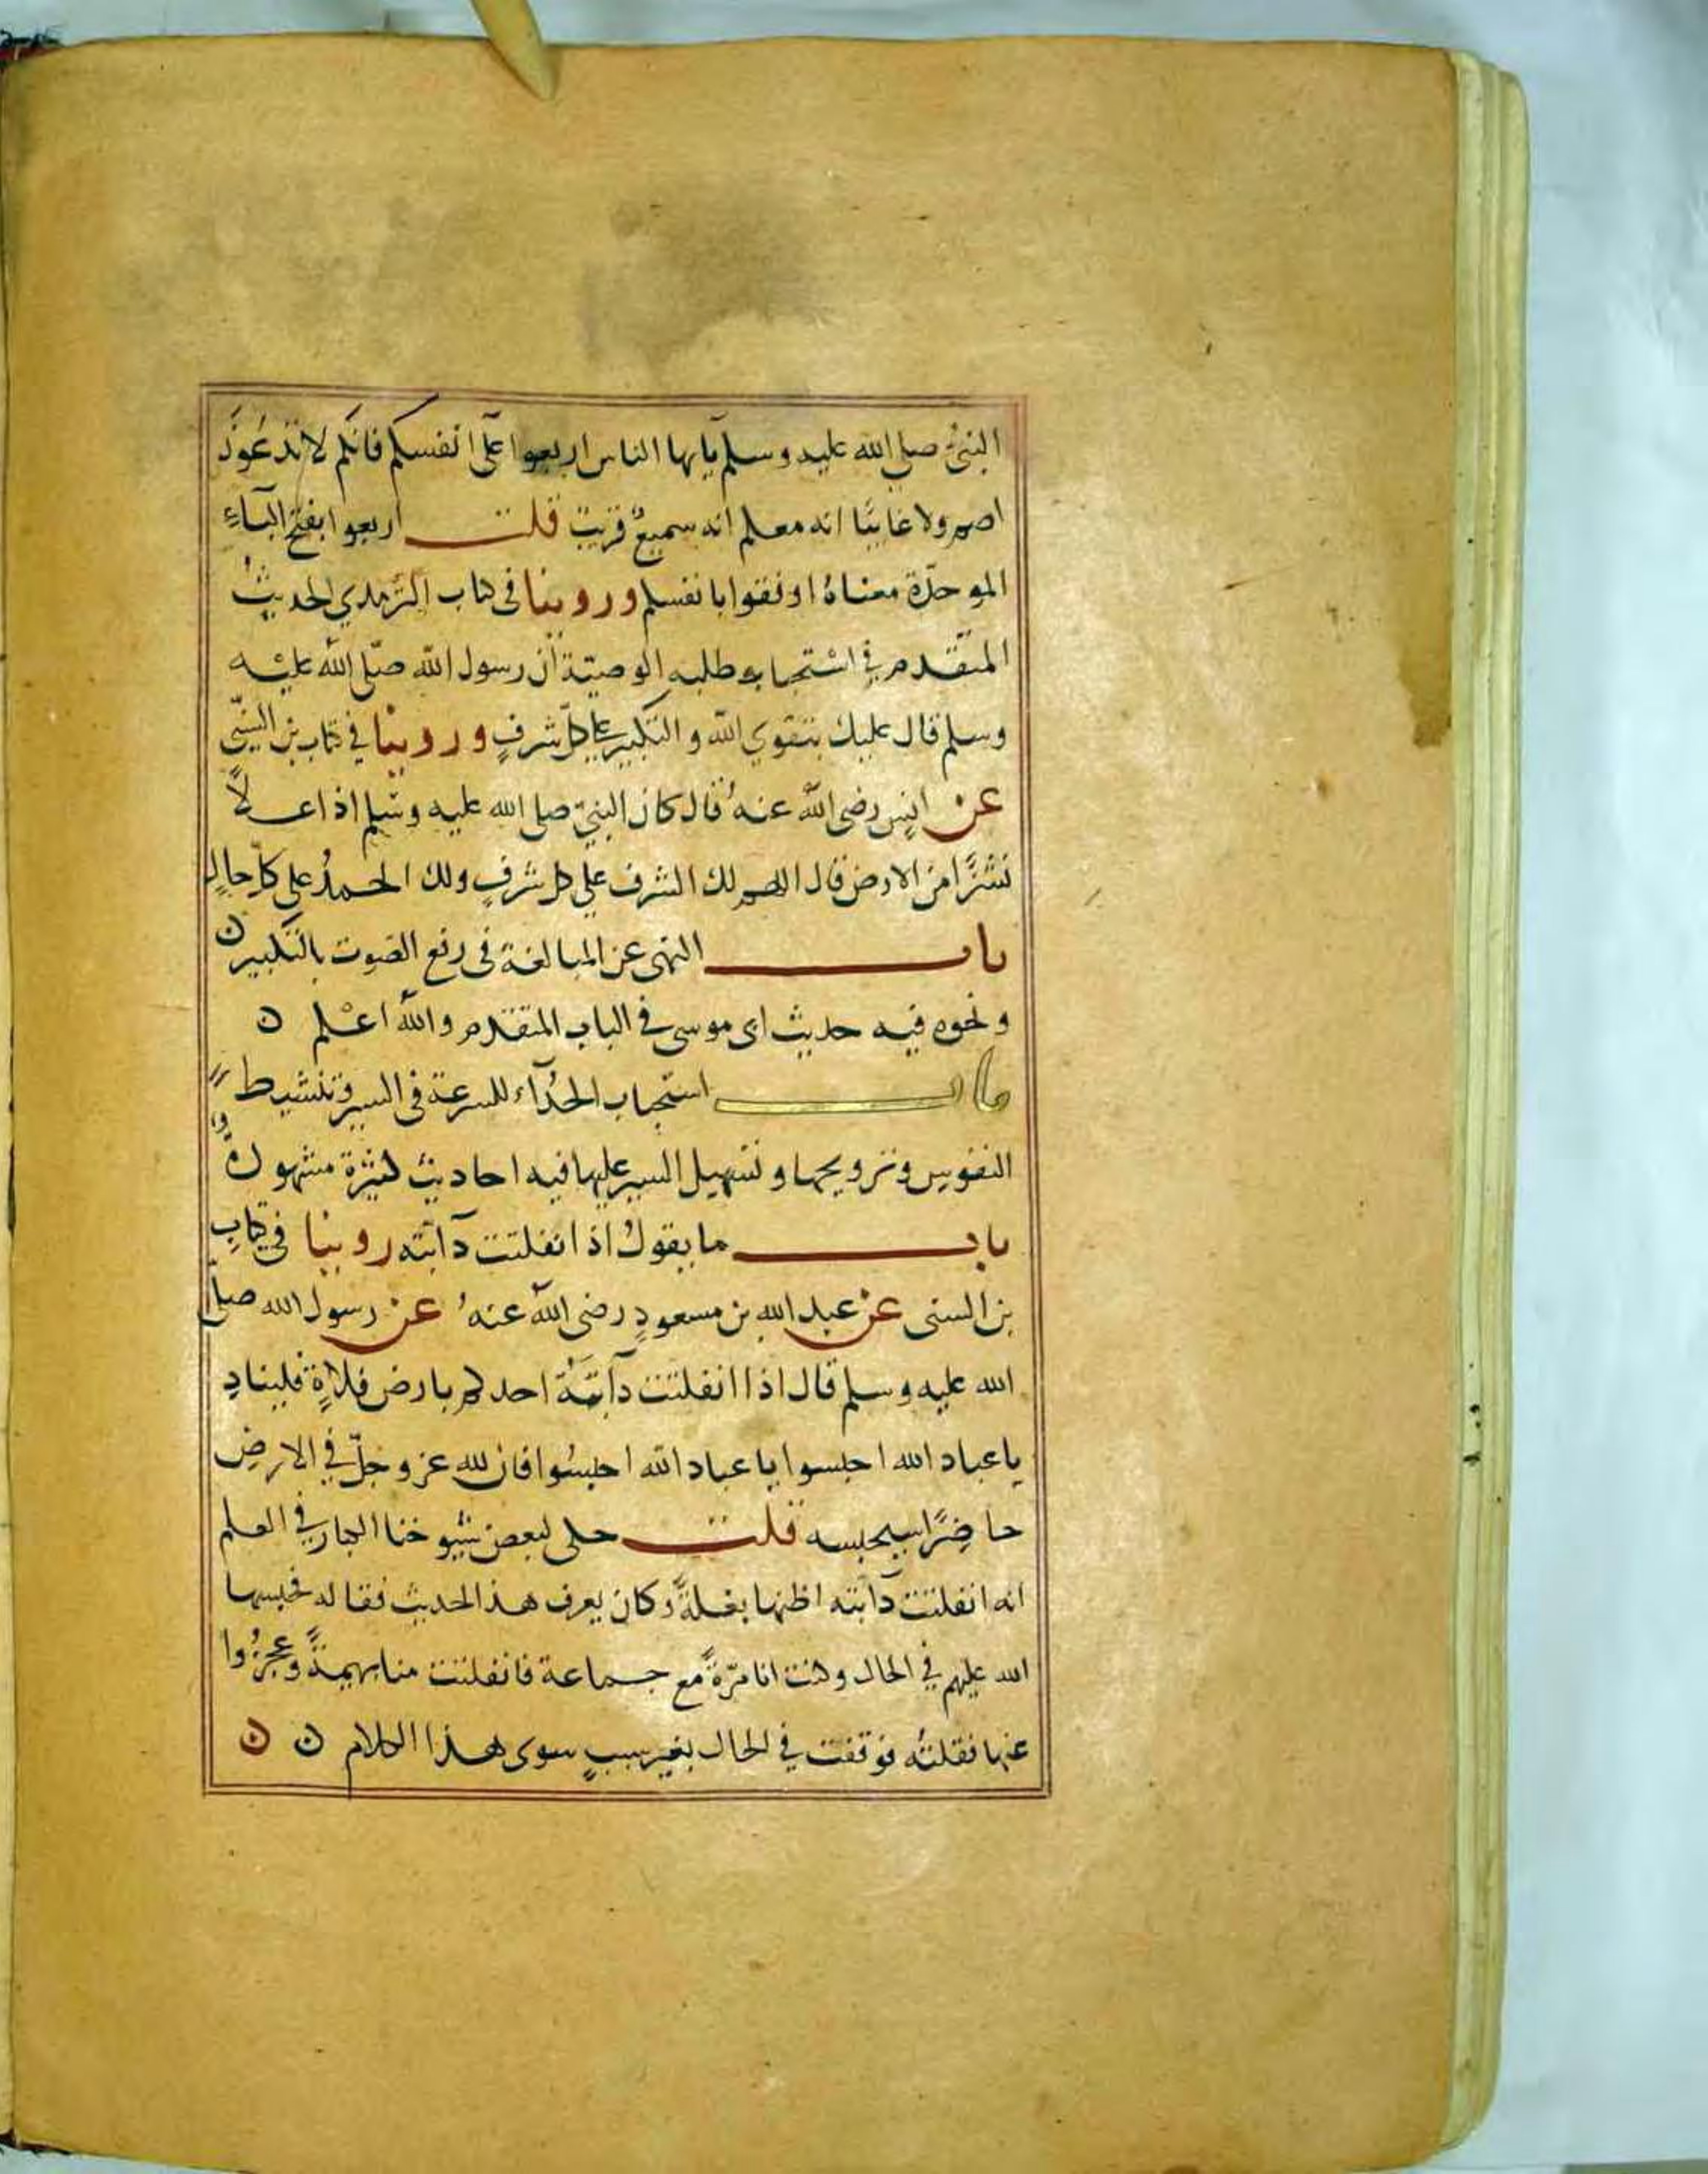 النبيّ صلى الله عليه وسلم يآيها الناس اربعوا على انفسكم فانكم لا تدعونَ
اصم ولا غايبًا انه معكم انه سميعٌ قريبٌ قلت اربعوا بفتح البآءِ
الموحدّة معناهُ اوفقوا بانفسكم وروينا في كتاب الترمذي الحديثُ
المتقدم في اسْتحباب طلبه الوصيّة ان رسول الله صلى الله عليْه
وسلم قال عليك بتقوي الله والتكبير على كلّ شرفٍ وروينا في كتاب بن السنّي
عن انسٍ رضى الله عنهُ قال كان النبيّ صلى الله عليه وسلم اذا عــلاً
نشزًا من الارض قال اللهم لك الشرف علي كل شرفٍ ولك الحمدُ على كلّ حالٍ
باب النهى عن المبالغة فى رفع الصوت بالتكبير ن
ونحوه فيه حديث ابى موسى في الباب المتقدم والله اعْلم ن
باب استحباب الحُدآء للسرعة فى السير وتنشيط
النفوس وترويحها وتسهيل السير عليها فيه احاديث كثيرة مشهورةٌ
باب ما يقولُ اذا انفلتت دآبته روينا فى كتابِ
بن السنى عن عبد الله بن مسعودٍ رضى الله عنهُ عن رسول الله صلى
الله عليه وسلم قال اذا انفلتت دآبّة احدكم بارض فلاةٍ فليناد
يا عباد الله احبسوا يا عباد الله احبسُوا فان لله عز وجلّ في الارضِ
حاضِرًا سيحبسه قلت حكى لبعض شيوخنا الكبار في العلم
انه انفلتت دآبته اظنها بغلةً وكان يعرف هذا الحديث فقاله فحبسها
الله عليهم في الحال وكنت انا مرّةً مع جماعة فانفلتت منا بهيمةً وعجزُوا
عنها فقلتُه فوقفت في الحال بغير سببٍ سوى هذا الكلام ن ن